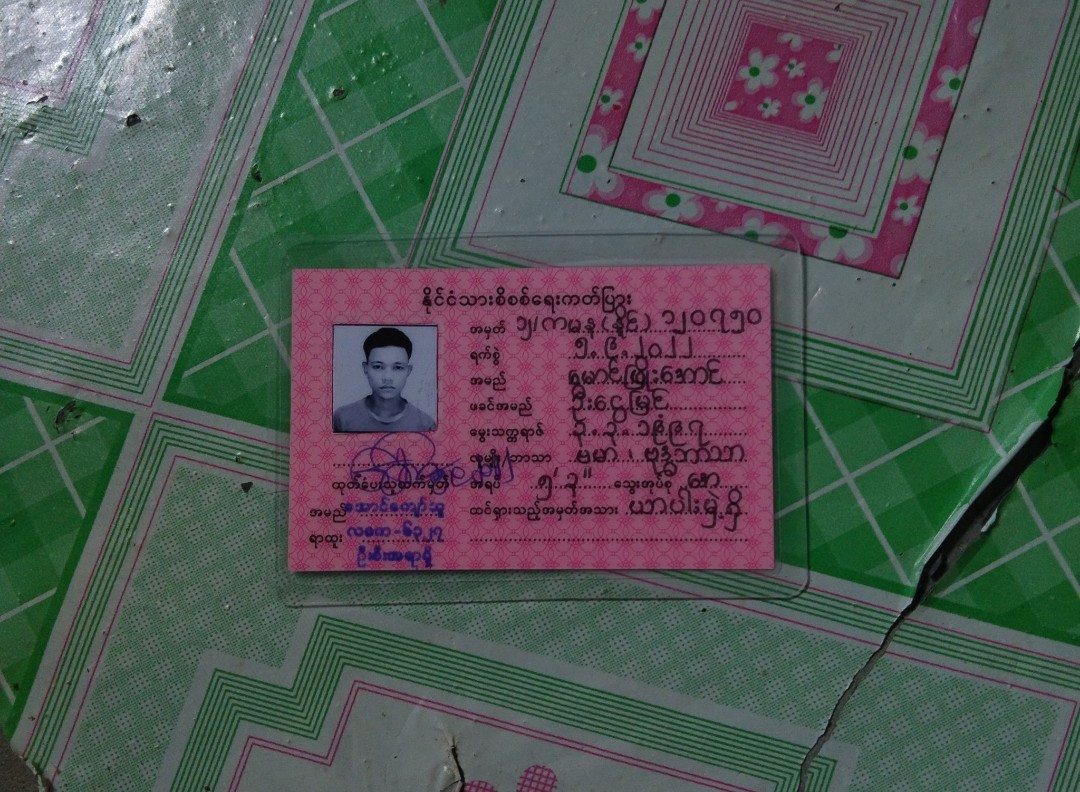 နိုင်ငံသားစိစစ်ရေးကတ်ပြား
အမှတ် ၅/ကမန(နိုင်) ၁၂၀၇၅၀
ရက်စွဲ ၅.၉.၂၀၂၂
အမည် မောင်ဖြိုးအောင်
ဖခင်အမည် ဦးငွေမြင့်
မွေးသက္ကရာဇ် ၃.၃.၁၉၉၇
လူမျိုး/ဘာသာ ဗမာ၊ ဗုဒ္ဓဘာသာ
အရပ် ၅' ၃" သွေးအုပ်စု အော
ထင်ရှားသည့်အမှတ်အသား ယာပါးမှဲ့ရှိ
ထုတ်ပေးသူလက်မှတ်
အမည် အောင်ကျော်သူ
ရာထူး လဝက-၆၃၂၇
ဦးစီးအရာရှိ